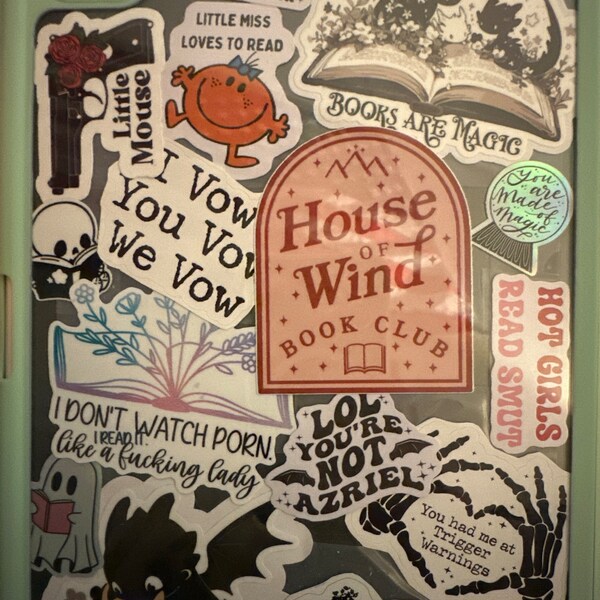 LITTLE MISS
LOVES TO READ
Little
Mouse
BOOKS ARE MAGIC
I Vow
You Vow
We Vow
House
OF
Wind
BOOK CLUB
You
are
Made of
Magic
HOT GIRLS
READ SMUT
I DON'T WATCH PORN.
I READ IT.
like a fucking lady
LOL
YOU'RE
NOT
AZRIEL
You had me at
Trigger
Warnings